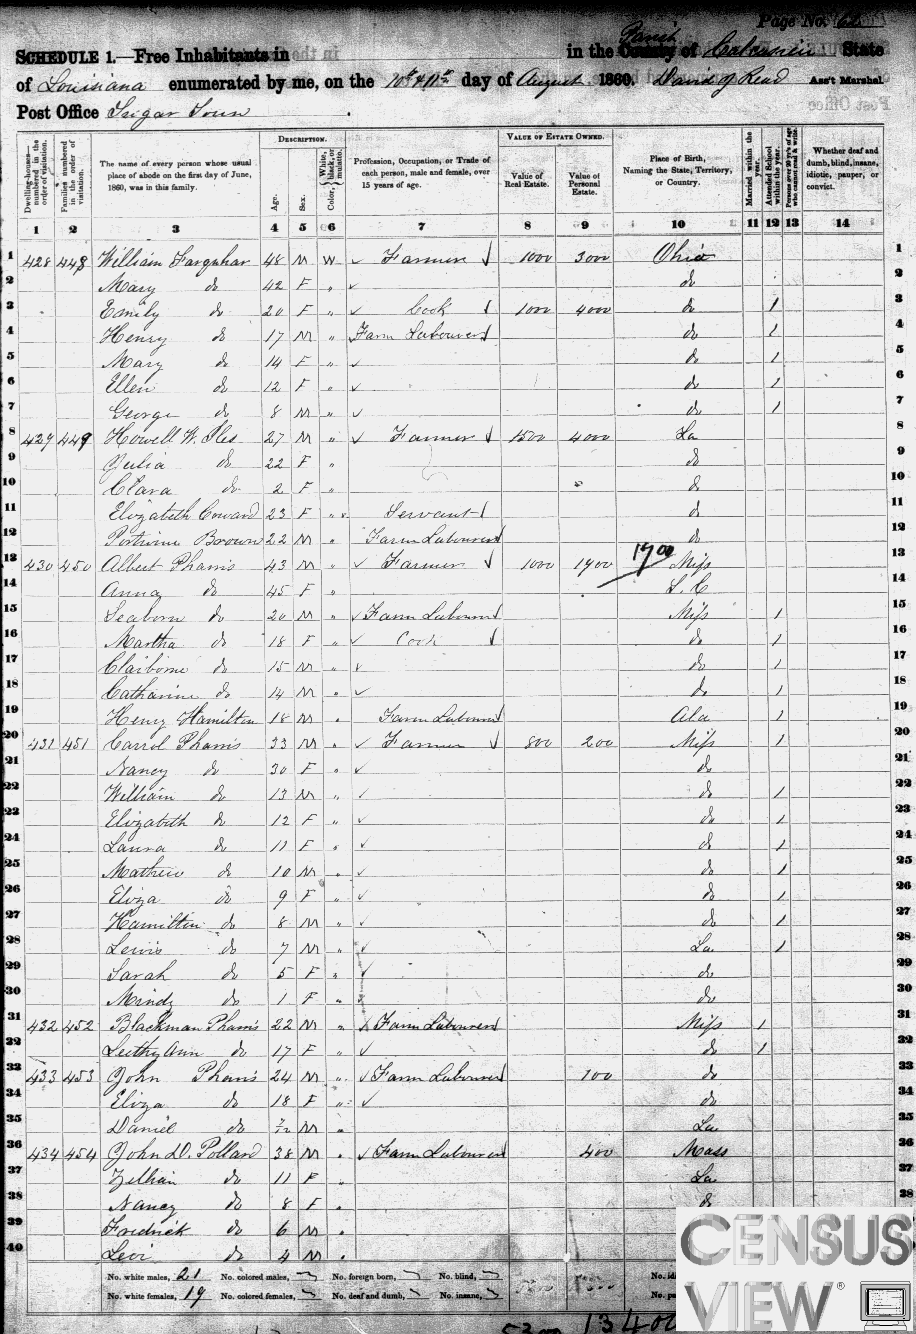 Page No. 62
SCHEDULE 1.—Free Inhabitants in in the County Parish of Calcasieu State
of Louisiana enumerated by me, on the 10th & 11th day of August 1860. David J Read Ass't Marshal.
Post Office Sugar Town
Dwelling-houses—numbered in the order of visitation.
Families numbered in the order of visitation.
The name of every person whose usual place of abode on the first day of June, 1860, was in this family.
DESCRIPTION.
Age.
Sex.
Color, White, black, or mulatto.
Profession, Occupation, or Trade of each person, male and female, over 15 years of age.
VALUE OF ESTATE OWNED.
Value of Real Estate.
Value of Personal Estate.
Place of Birth, Naming the State, Territory, or Country.
Married within the year.
Attended School within the year.
Persons over 20 y'rs of age who cannot read & write.
Whether deaf and dumb, blind, insane, idiotic, pauper, or convict.
1 2 3 4 5 6 7 8 9 10 11 12 13 14
1 428 448 William Farquhar 48 M W Farmer 1000 3000 Ohio 1
2 Mary do 42 F " do 2
3 Emily do 20 F " Cook 1000 4000 do 1 3
4 Henry do 17 M " Farm Labourer do 1 4
5 Mary do 14 F " do 1 5
6 Ellen do 12 F " do 1 6
7 George do 8 M " do 1 7
8 429 449 Howell W. Iles 27 M " Farmer 1500 4000 La 8
9 Julia do 22 F " do 9
10 Clara do 2 F " do 10
11 Elizabeth Coward 23 F " Servant do 11
12 Brown 22 M " Farm Labourer do 12
13 430 450 Albert Pharris 43 M " Farmer 1000 1900 1900 Miss 13
14 Anna do 45 F " S. C 14
15 Seaborn do 20 M " Farm Labourer Miss 1 15
16 Martha do 18 F " Cook do 1 16
17 Claiborne do 15 M " do 1 17
18 Catharine do 14 M " do 1 18
19 Henry Hamilton 18 M " Farm Labourer Ala 1 19
20 431 451 Carrol Pharris 33 M " Farmer 800 200 Miss 1 20
21 Nancy do 30 F " do 21
22 William do 13 M " do 1 22
23 Elizabeth do 12 F " do 1 23
24 Laura do 11 F " do 1 24
25 Mathew do 10 M " do 1 25
26 Eliza do 9 F " do 1 26
27 Hamilton do 8 M " do 1 27
28 Lewis do 7 M " La 1 28
29 Sarah do 5 F " do 29
30 Mindy do 1 F " do 30
31 432 452 Blackman Pharris 22 M " Farm Labourer Miss 1 31
32 Ann do 17 F " do 1 32
33 433 453 John Pharis 24 M " Farm Labourer 100 do 33
34 Eliza do 18 F " do 34
35 Daniel do M " La 35
36 434 454 John D. Pollard 38 M " Farm Labourer 400 Mass 36
37 Zillian do 11 F " La 37
38 Nancy do 8 F " do 38
39 Fredrick do 6 M "
40 Levi do 4 M "
No. white males, 21 No. colored males, No. foreign born, No. blind,
No. white females, 19 No. colored females, No. deaf and dumb, No. insane,
13400
CENSUS
VIEW®